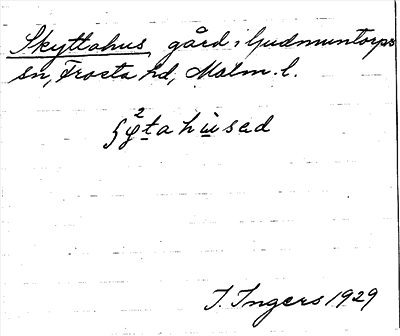 Skyttahus, gård i Gudmuntorps
sn, Frosta hd, Malm. l.
I. Ingers 1929